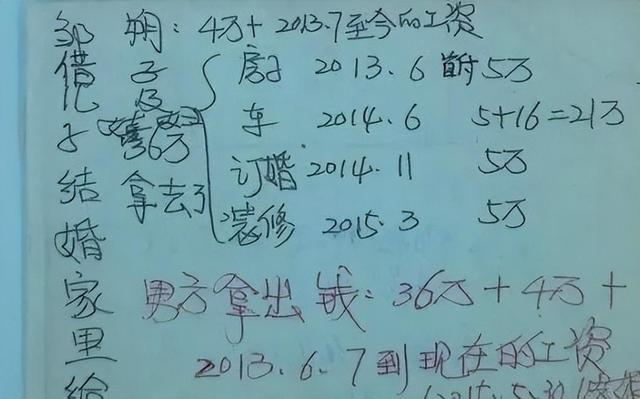 邹借儿子结婚家里给
翔：4万+2013.7至今的工资
子及
36万
拿去了
房子 2013.6 首付 5万
车 2014.6 5+16=21万
订婚 2014.11 5万
装修 2015.3 5万
男方拿出钱：36万+4万+
2013.6.7到现在的工资
(2015.5.30